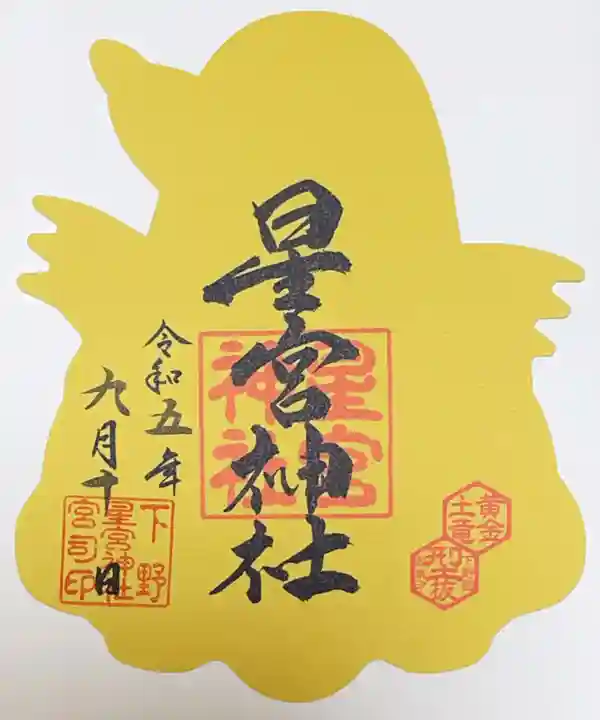 星宮神社
令和五年
九月十日
星宮
神社
下野
星宮神社
宮司印
黄金
土竜